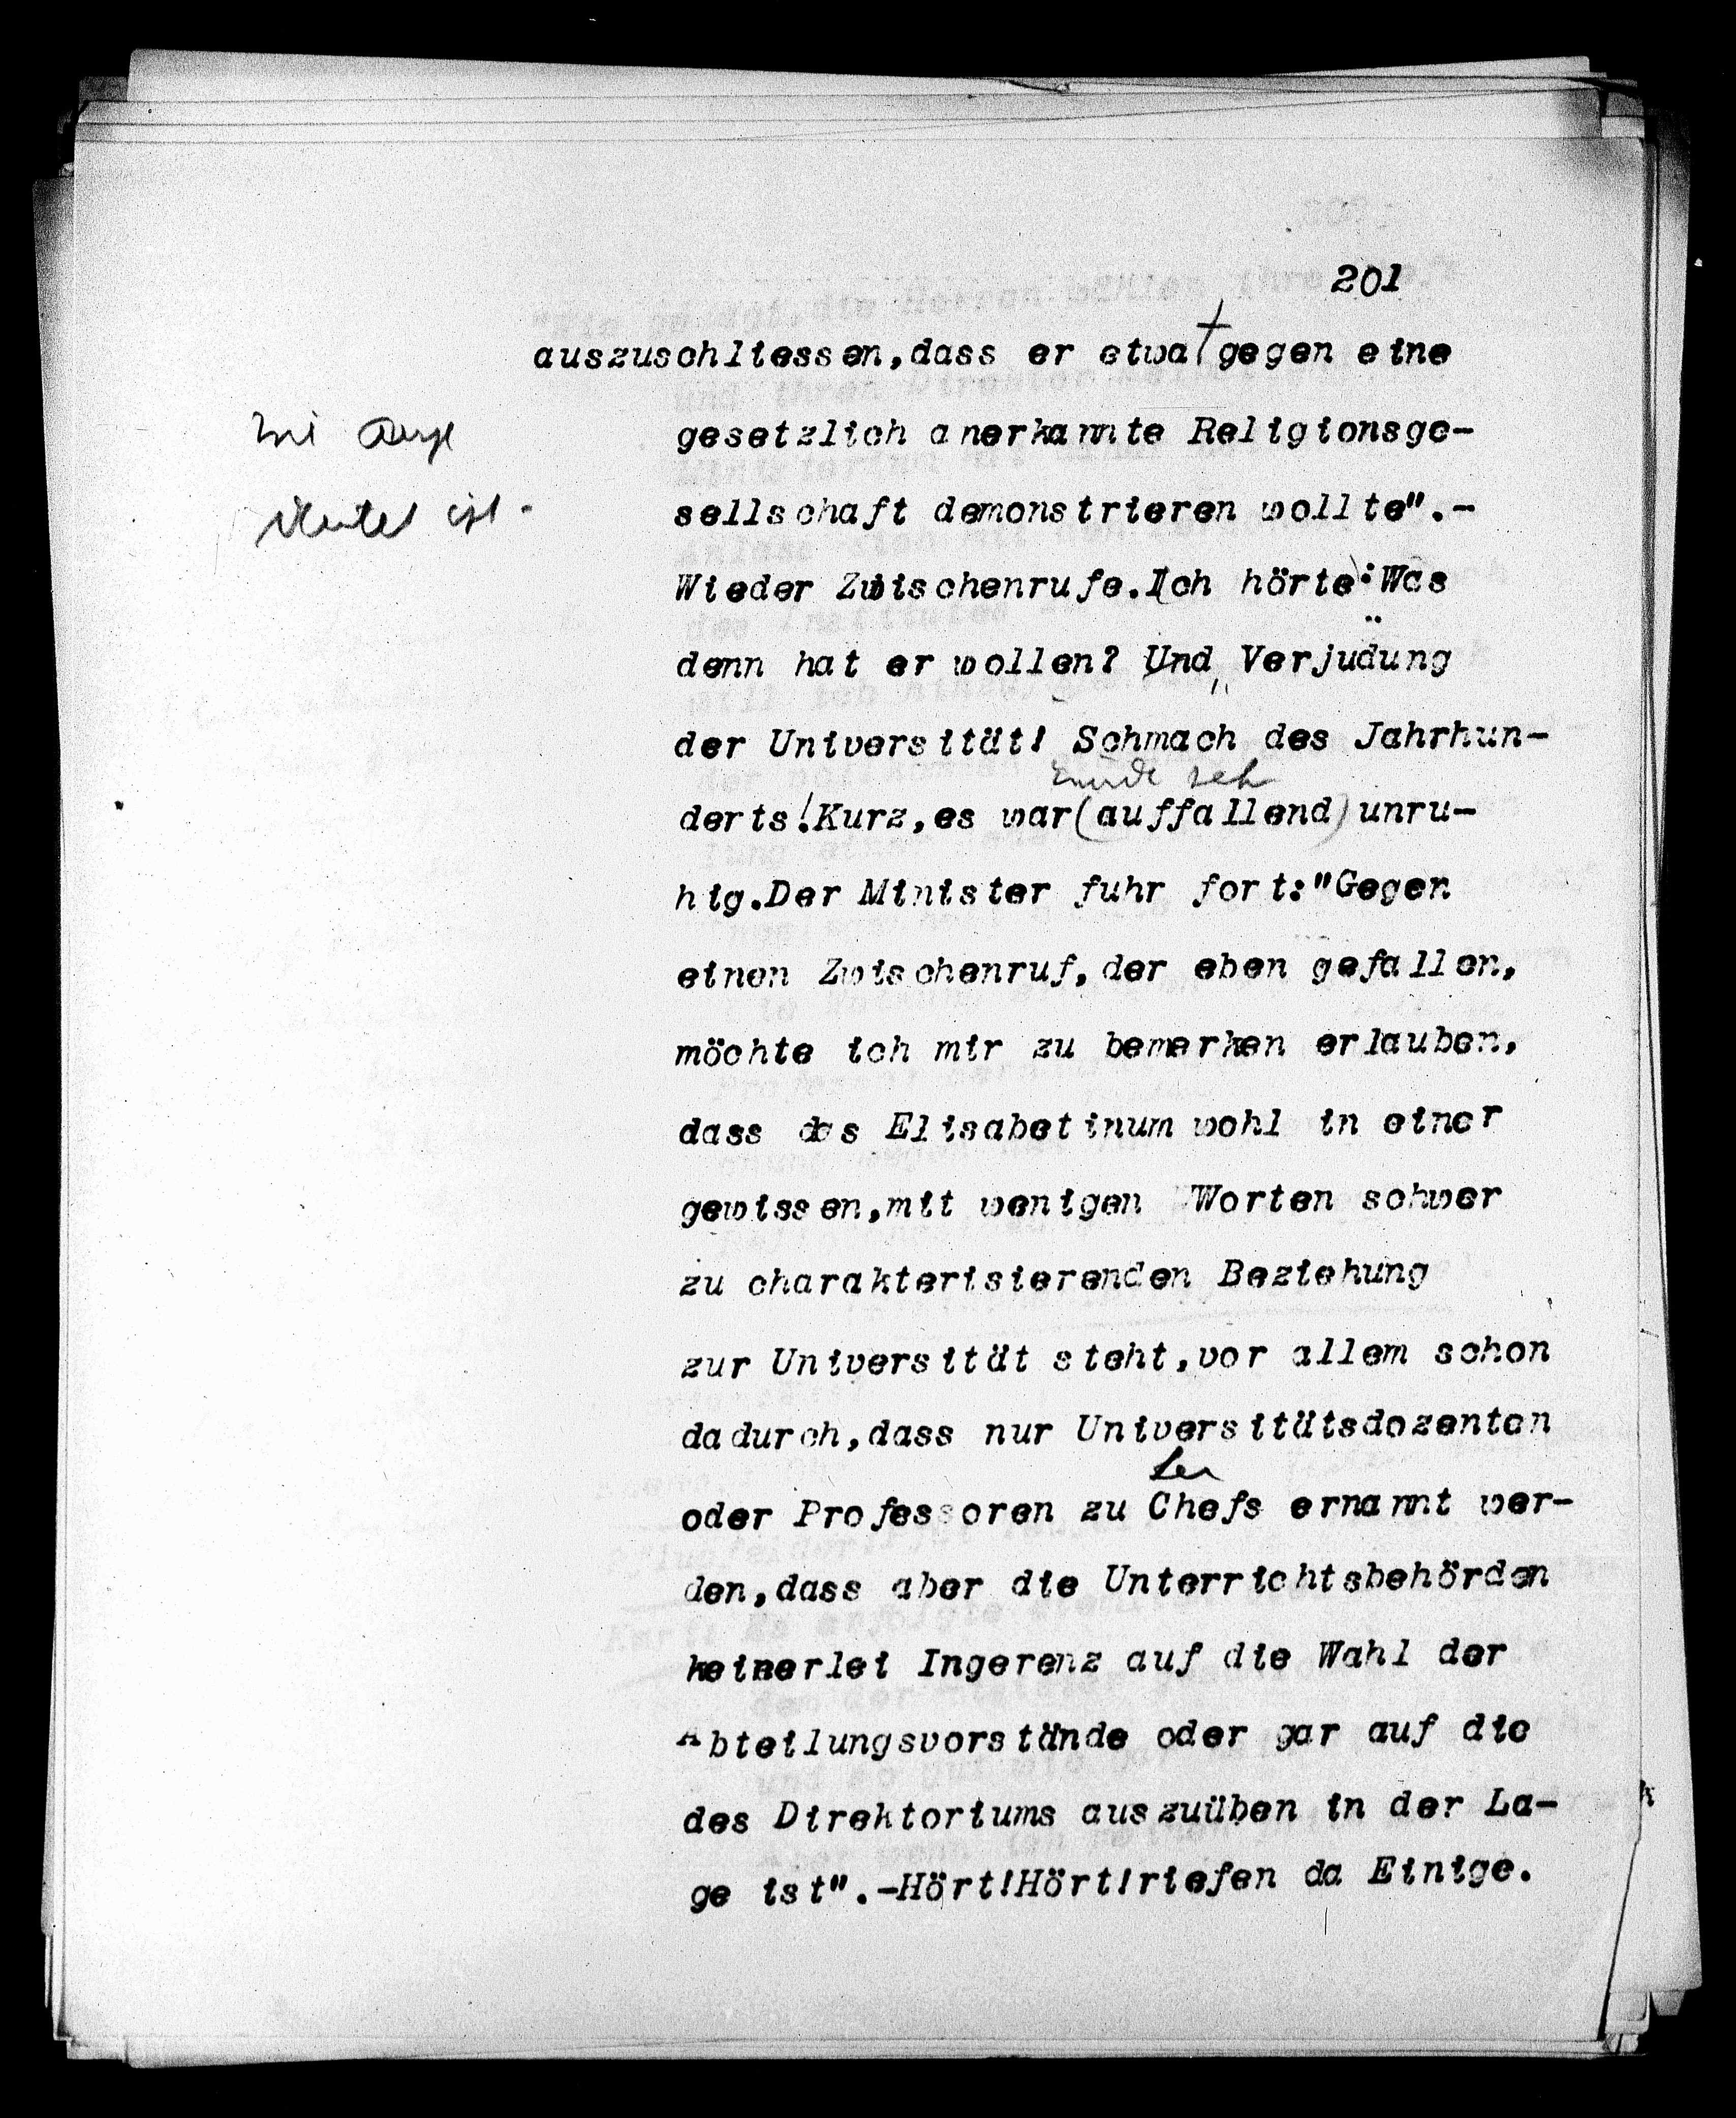 201
auszuschliessen,dass er etwa gegen eine
gesetzlich anerkannte Religionsge-
sellschaft demonstrieren wollte".-
Wieder Zwischenrufe.Ich hörte:Was
denn hat er wollen? Und Verjudung
der Universität! Schmach des Jahrhun-
derts!Kurz,es war(auffallend)unru-
hig.Der Minister fuhr fort:"Gegen
einen Zwischenruf,der eben gefallen,
möchte ich mir zu bemerken erlauben,
dass das Elisabetinum wohl in einer
gewissen,mit wenigen Worten schwer
zu charakterisierenden Beziehung
zur Universität steht,vor allem schon
dadurch,dass nur Universitätsdozenten
oder Professoren zu Chefs ernannt wer-
den,dass aber die Unterrichtsbehörden
keinerlei Ingerenz auf die Wahl der
Abteilungsvorstände oder gar auf die
des Direktoriums auszuüben in der La-
ge ist".-Hört!Hört!riefen da Einige.
ist.